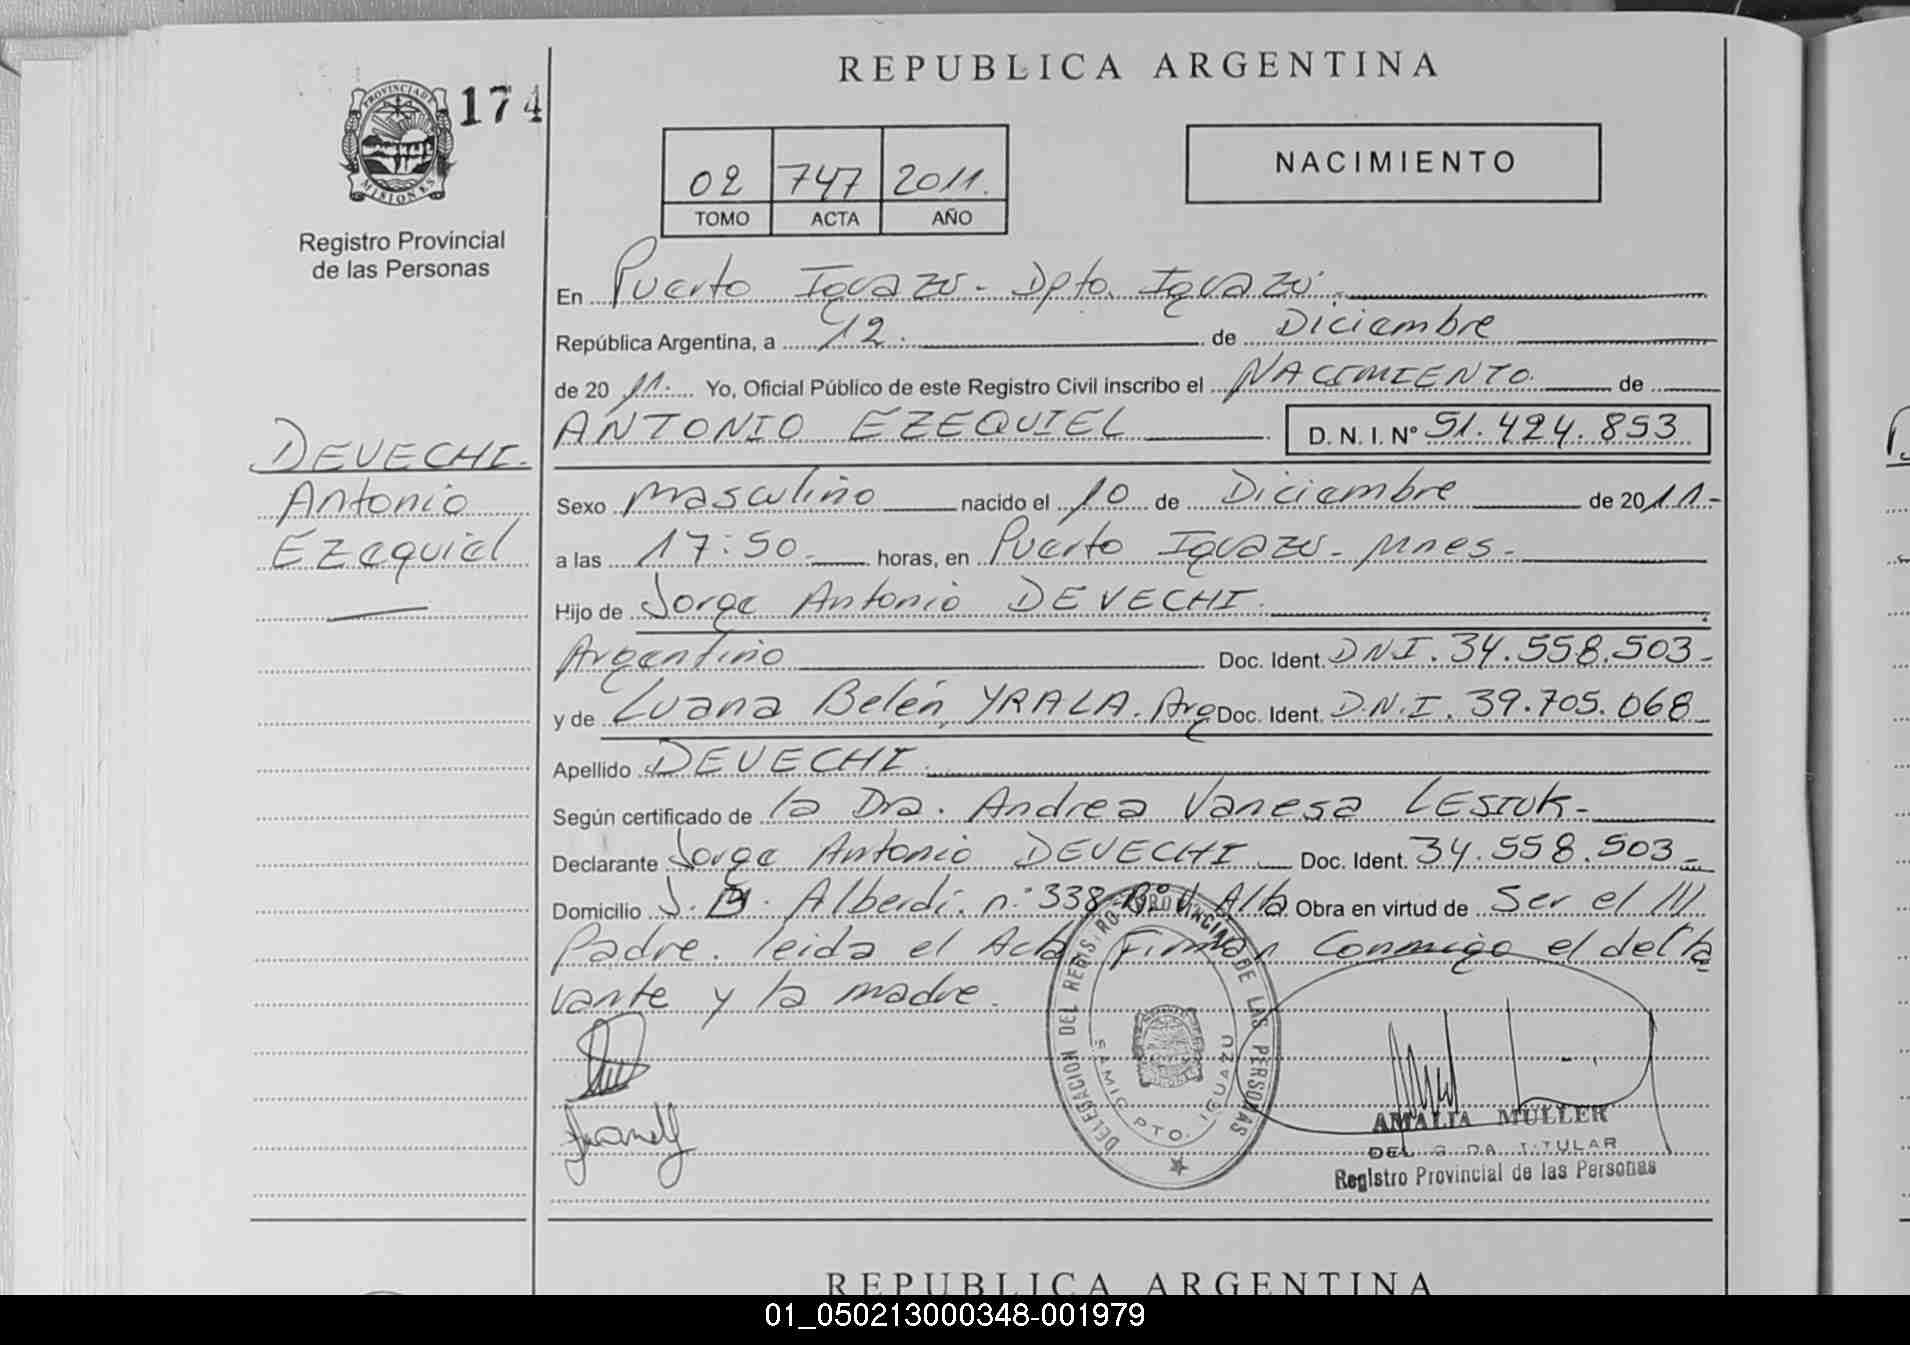 REPUBLICA ARGENTINA
PROVINCIA DE
MISIONES
174
Registro Provincial
de las Personas
02 747 2011.
TOMO ACTA AÑO
NACIMIENTO
En Puerto Iguazú - Dpto. Iguazú.
República Argentina, a 12. de Diciembre
de 20 11. Yo, Oficial Público de este Registro Civil inscribo el NACIMIENTO. de
ANTONIO EZEQUIEL D. N. I. Nº 51.424.853
DEVECHI.
Antonio
Ezequiel
Sexo masculino nacido el 10 de Diciembre de 2011.-
a las 17:50. horas, en Puerto Iguazú - Mnes.
Hijo de Jorge Antonio DEVECHI.
Argentino Doc. Ident. DNI. 34.558.503-
y de Luana Belén, YRALA. Arg Doc. Ident. D.N.I. 39.705.068
Apellido DEVECHI.
Según certificado de la Dra. Andrea Vanesa LESIUK-
Declarante Jorge Antonio DEVECHI. Doc. Ident. 34.558.503-
Domicilio J. B. Alberdi. n° 338 Bº V. Alba Obra en virtud de Ser el
Padre. leida el Acta Firman Conmigo el decla
rante y la madre.
DELEGACION DEL REGISTRO PROVINCIAL DE LAS PERSONAS
SAMIC PTO. IGUAZU
AMALIA MULLER
TITULAR
Registro Provincial de las Personas
REPUBLICA ARGENTINA
01_050213000348-001979